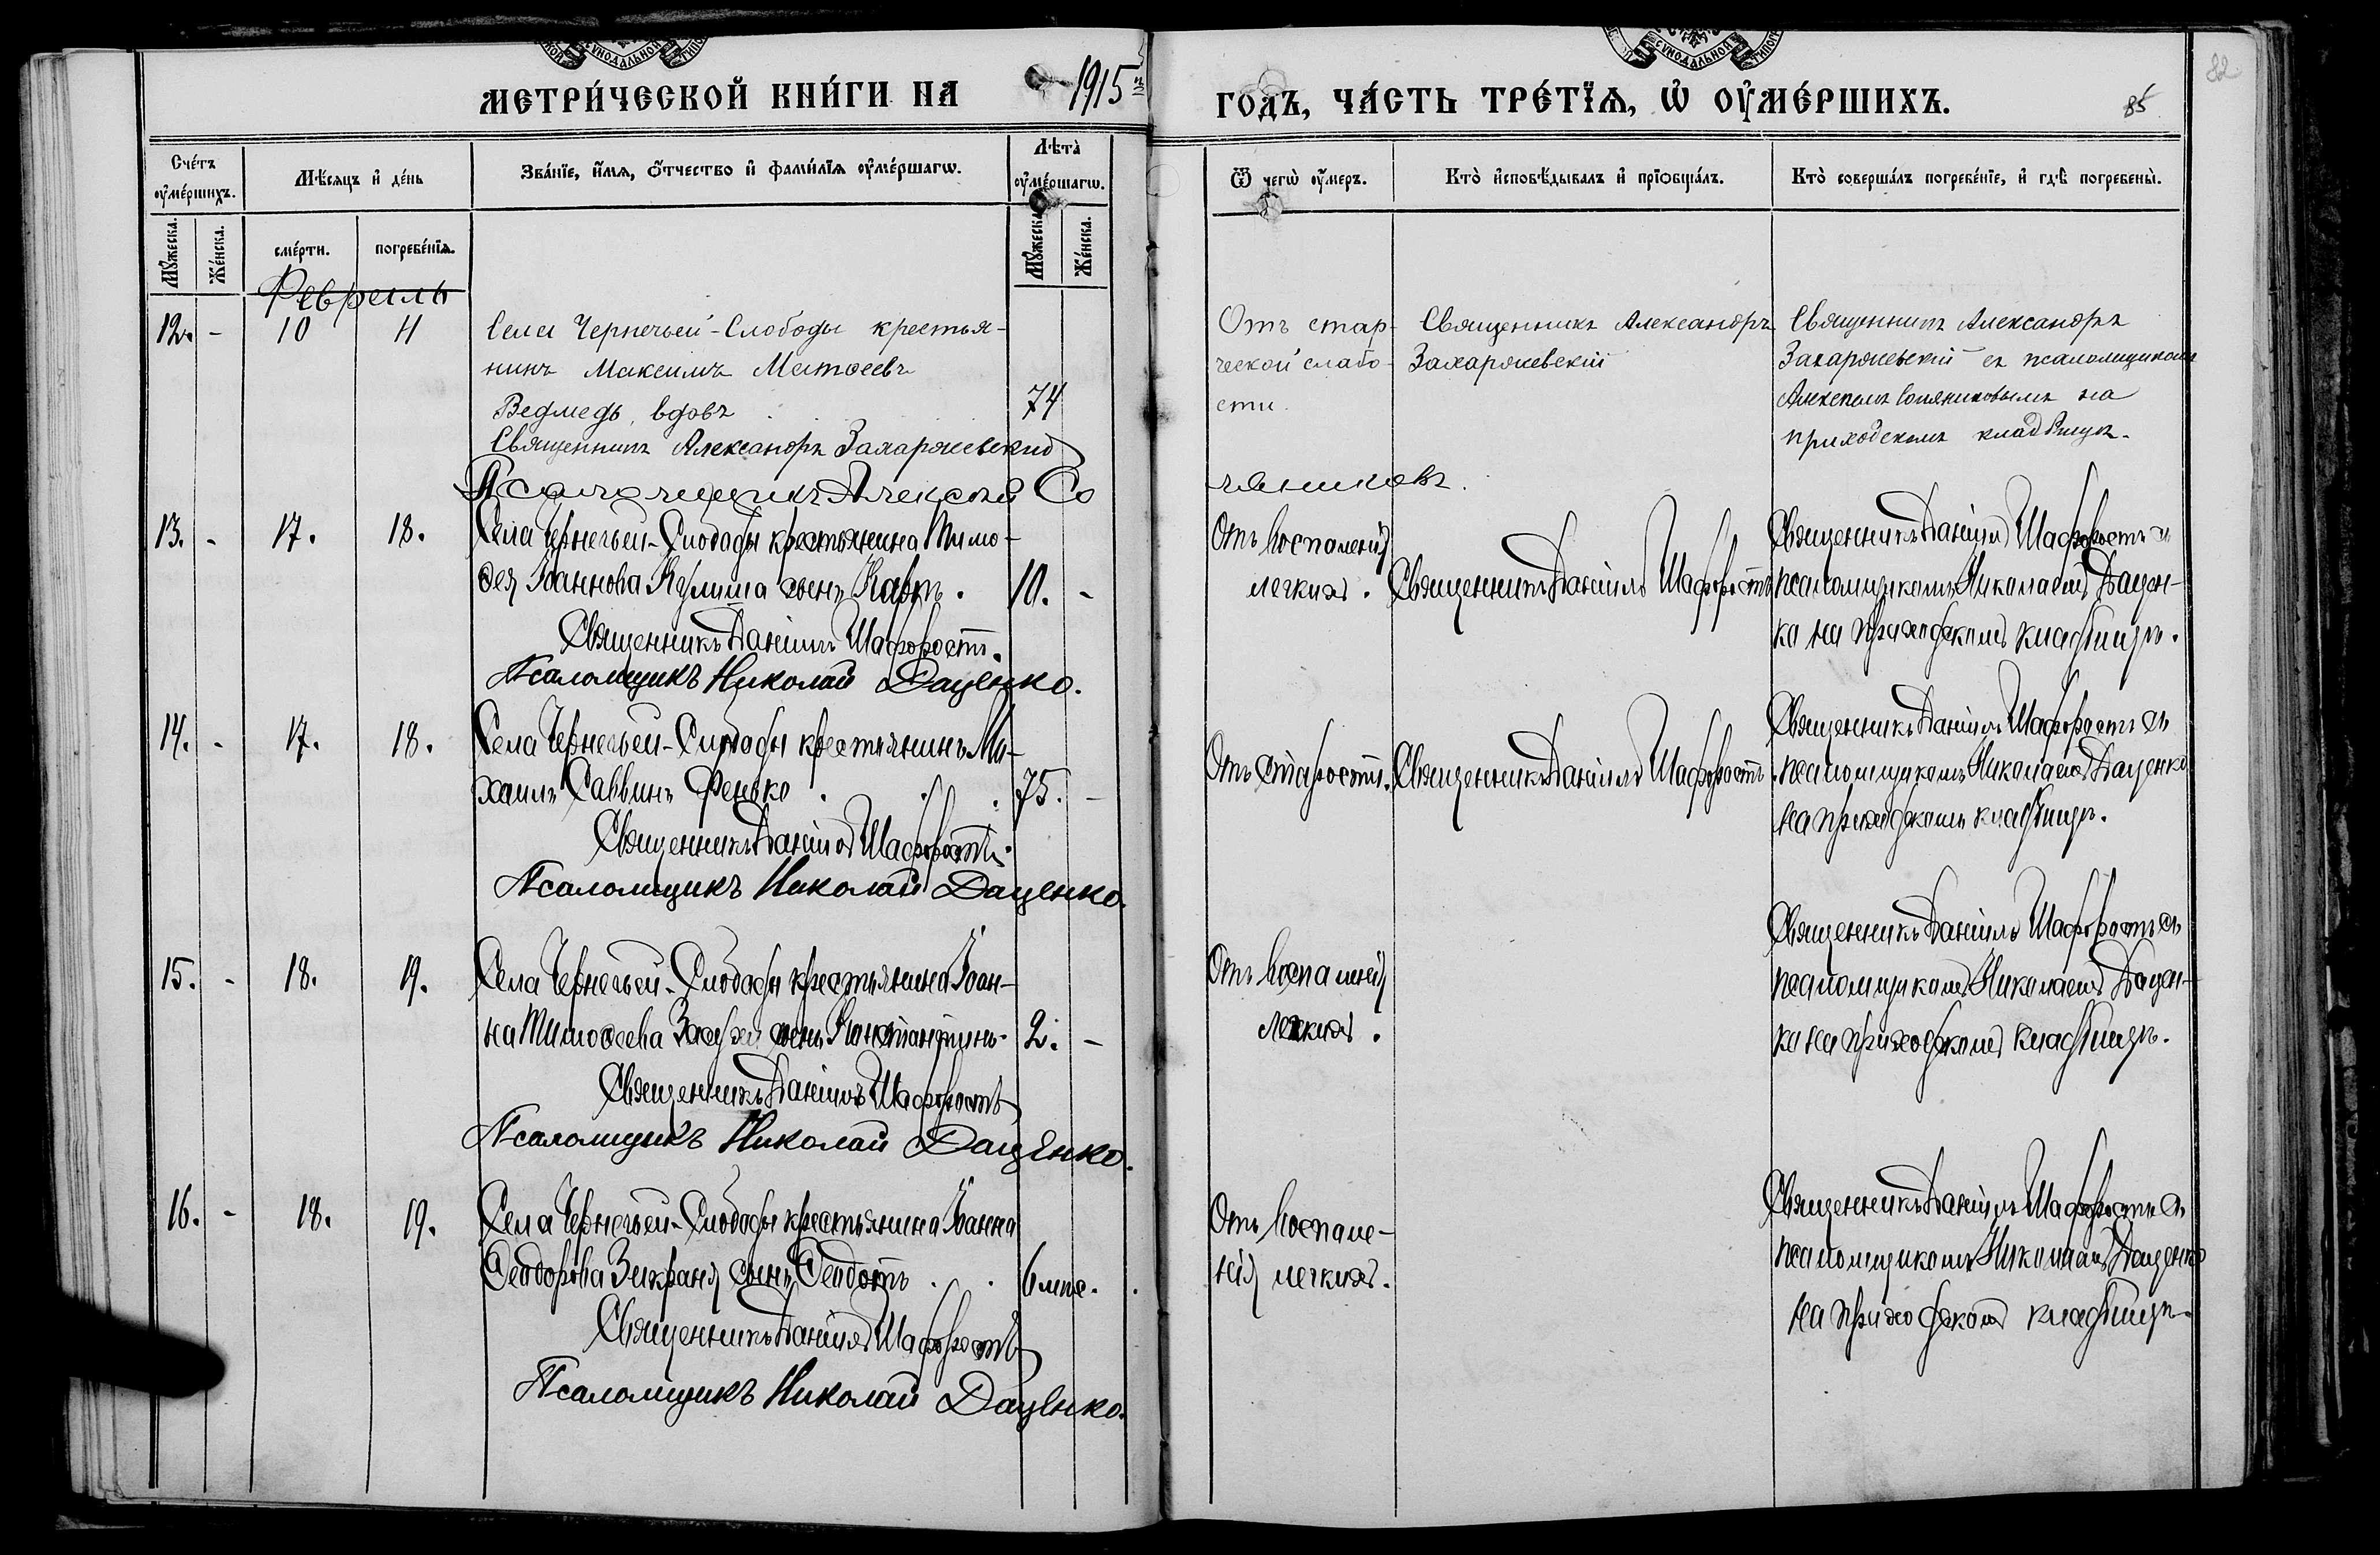 СѴНОДАЛЬНОЙ
СѴНОДАЛЬНОЙ ТИПОГР
МЕТРИ́ЧЕСКОЙ КНИ́ГИ НА 1915 ГОДЪ, ЧА́СТЬ ТРЕ́ТІѦ, Ѡ҆ ОУ҆МЕ́РШИХЪ.
85
82
Сче́тъ оу҆ме́ршихъ.
Мѣ́сяцъ и҆ де́нь
Зва́нїе, и҆́мѧ, ѻ҆́тчество и҆ фами́лїѧ оу҆ме́ршагѡ.
Лѣта̀ оу҆ме́ршагѡ.
Ѿ чегѡ̀ оу҆́меръ.
Кто̀ и҆сповѣ́дывалъ и҆ прїѻбща́лъ.
Кто̀ соверша́лъ погребе́нїе, и҆ гдѣ̀ погребены̀.
Мꙋ́жеска.
Же́нска.
сме́рти.
погребе́нїѧ.
Мꙋ́жеска.
Же́нска.
Февраль
12. - 10 11
Села Чернечьей-Слободы крестья-
нинъ Максимъ Матѳеевъ
Ведмедь, вдовъ 74
Священникъ Александръ Захаржевскій
Псаломщикъ Алексѣй Со
ляниковъ.
Отъ стар-
ческой слабо-
сти.
Священникъ Александръ
Захаржевскій
Священникъ Александръ
Захаржевскій съ псаломщикомъ
Алексѣемъ Соляниковымъ на
приходскомъ кладбищѣ.
13. - 17. 18.
Села Чернечьей-Слободы крестьянина Тимо-
ѳея Іоаннова Кулиша сынъ Карпъ. 10. -
Священникъ Даніилъ Шафоростъ.
Псаломщикъ Николай Даценко.
Отъ воспаленія
легкихъ.
Священникъ Даніилъ Шафоростъ
Священникъ Даніилъ Шафоростъ съ
псаломщикомъ Николаемъ Дацен-
ко на приходскомъ кладбищѣ.
14. - 17. 18.
Села Чернечьей-Слободы крестьянинъ Ми-
хаилъ Саввинъ Фенько 75. -
Священникъ Даніилъ Шафоростъ.
Псаломщикъ Николай Даценко.
Отъ старости.
Священникъ Даніилъ Шафоростъ.
Священникъ Даніилъ Шафоростъ съ
псаломщикомъ Николаемъ Даценко
на приходскомъ кладбищѣ.
15. - 18. 19.
Села Чернечьей-Слободы крестьянина Іоан-
на Тимоѳеева сынъ Константинъ. 2. -
Священникъ Даніилъ Шафоростъ
Псаломщикъ Николай Даценко.
Отъ воспаленія
легкихъ.
Священникъ Даніилъ Шафоростъ съ
псаломщикомъ Николаемъ Дацен-
ко на приходскомъ кладбищѣ.
16. - 18. 19.
Села Чернечьей-Слободы крестьянина Іоанна
Ѳеодорова сынъ Ѳеодотъ 6 мѣс.
Священникъ Даніилъ Шафоростъ
Псаломщикъ Николай Даценко.
Отъ воспале-
нія легкихъ.
Священникъ Даніилъ Шафоростъ съ
псаломщикомъ Николаемъ Даценко
на приходскомъ кладбищѣ.